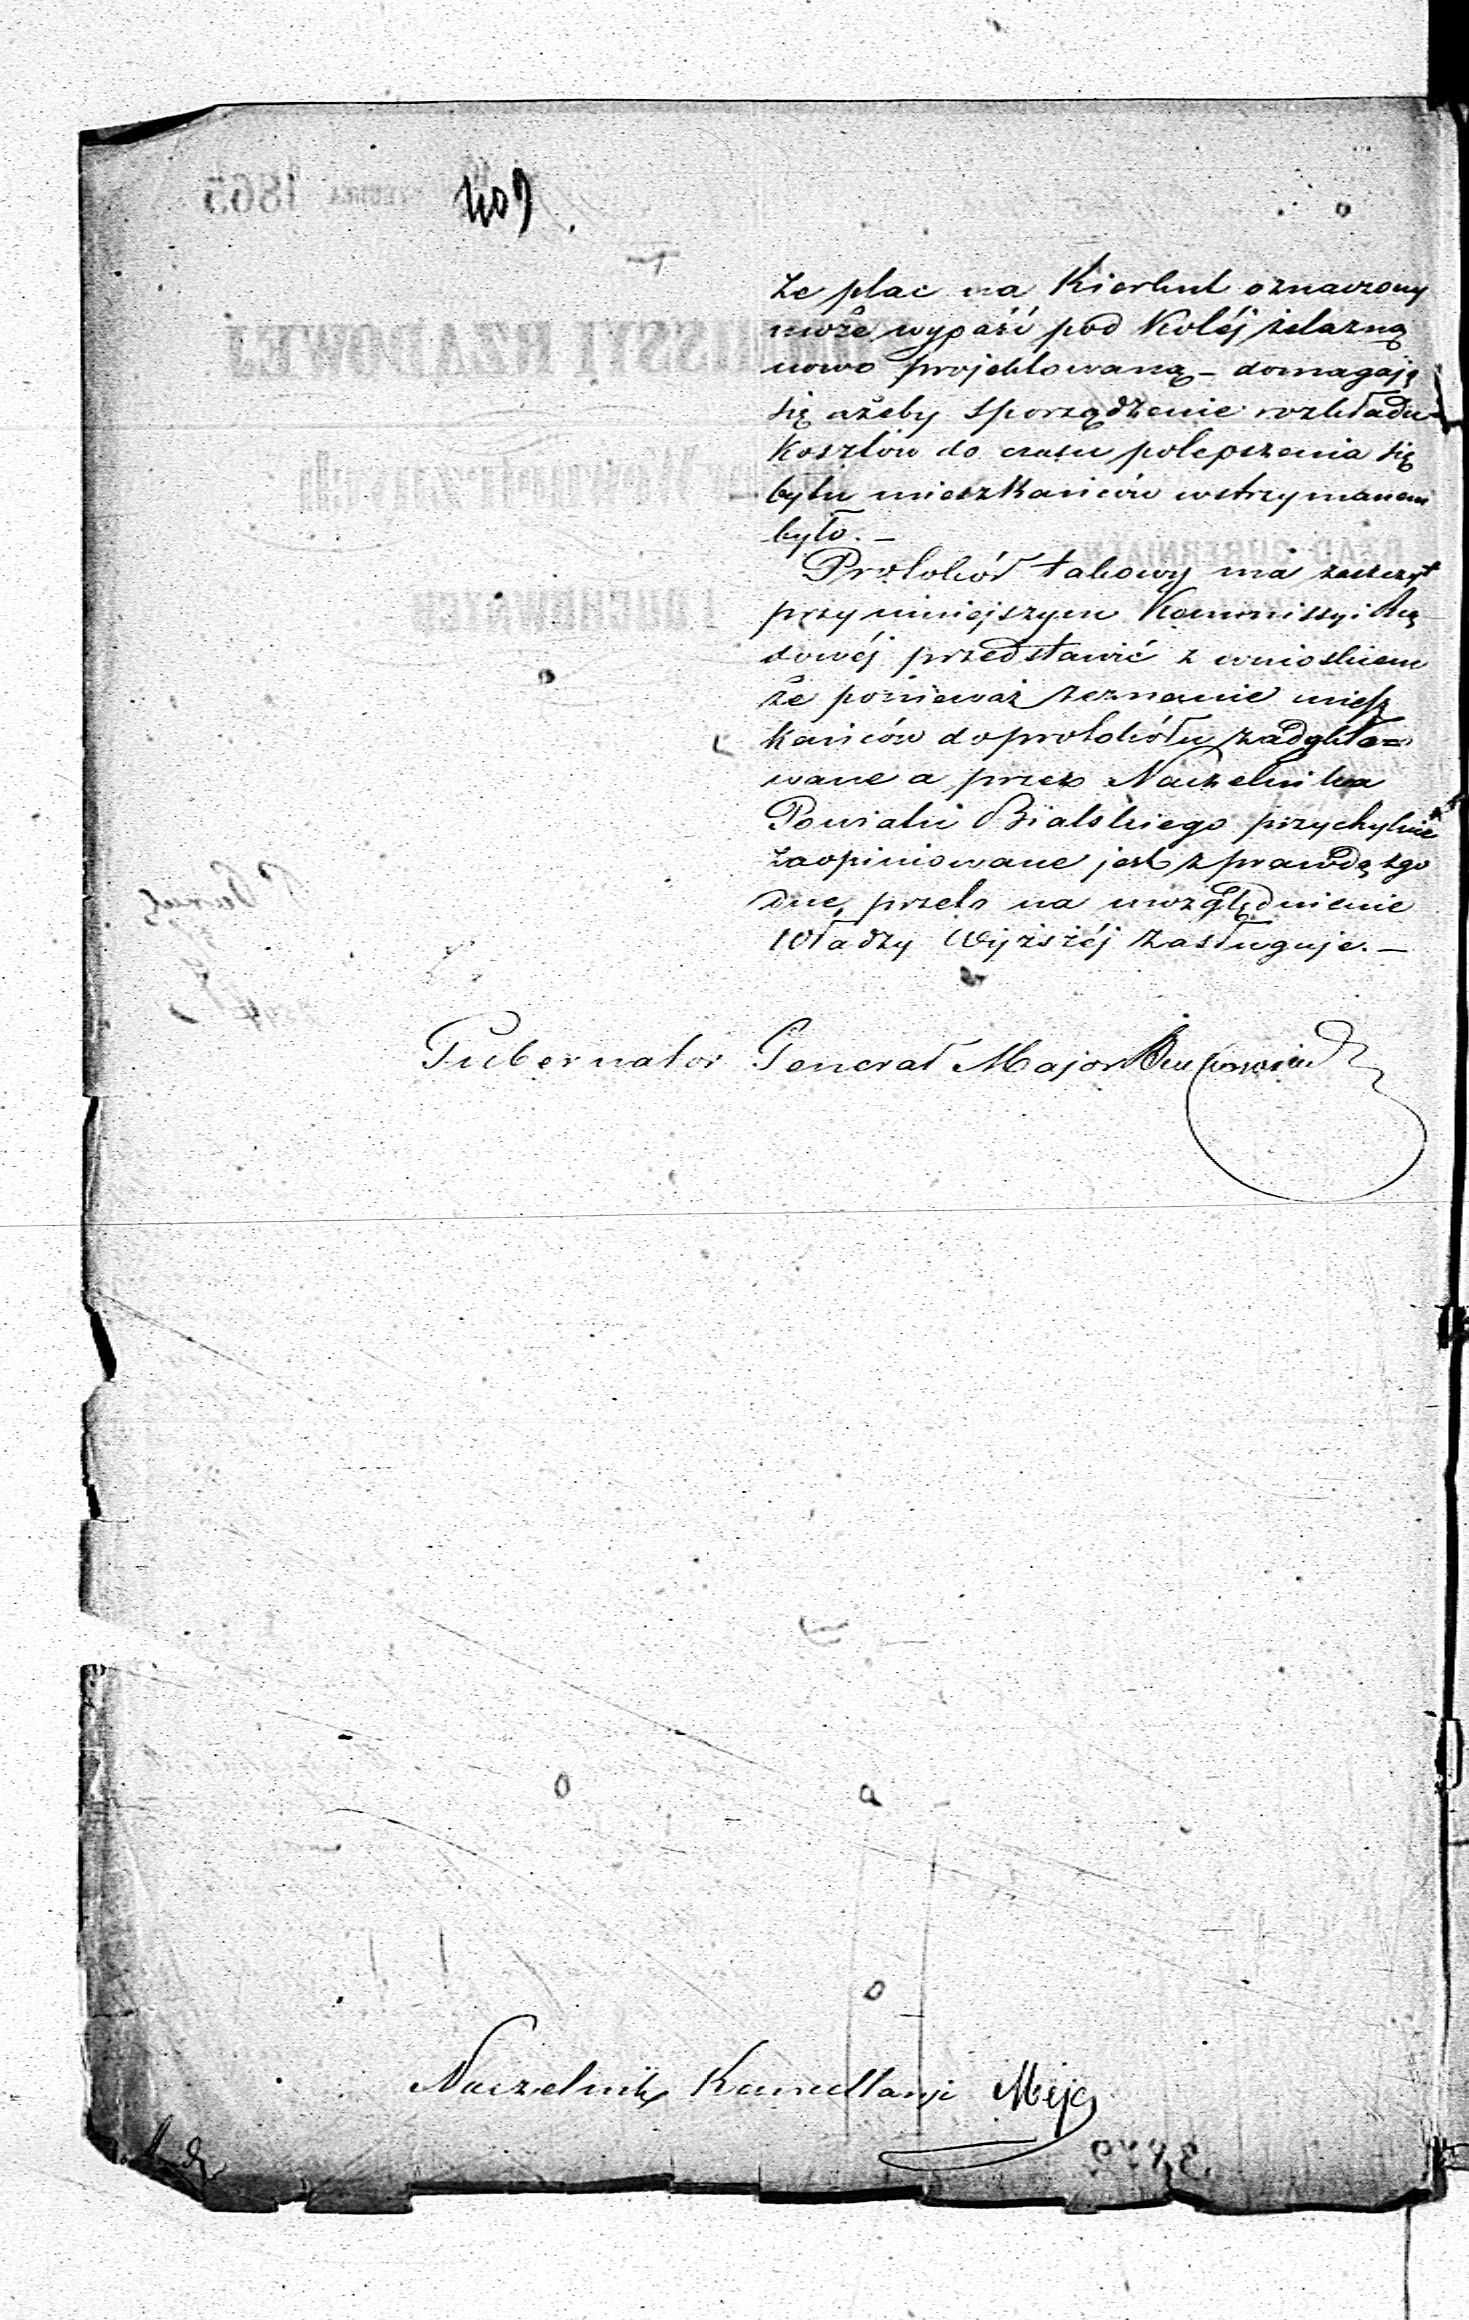 409
że plac na Kierkut oznaczony
może wypaść pod Koléj żelazną
nowo projektowaną – domagają
się ażeby sporządzenie rozkładu
Kosztów do czasu polepszenia się
bytu mieszkańców wstrzymanem
było. –
Protokół takowy ma zaszczyt
przy niniejszym Kommissyi Rzą
dowéj przedstawić z wnioskiem
że ponieważ zeznanie miesz
kańców do protokółu zadykto=
wane a przez Naczelnika
Powiatu Bialskiego przychylnie
zaopiniowane jest z prawdą zgo
dne, przeto na uwzględnienie
Władzy Wyższéj zasługuje. –
Gubernator Generał Major
Naczelnik Kancellaryi